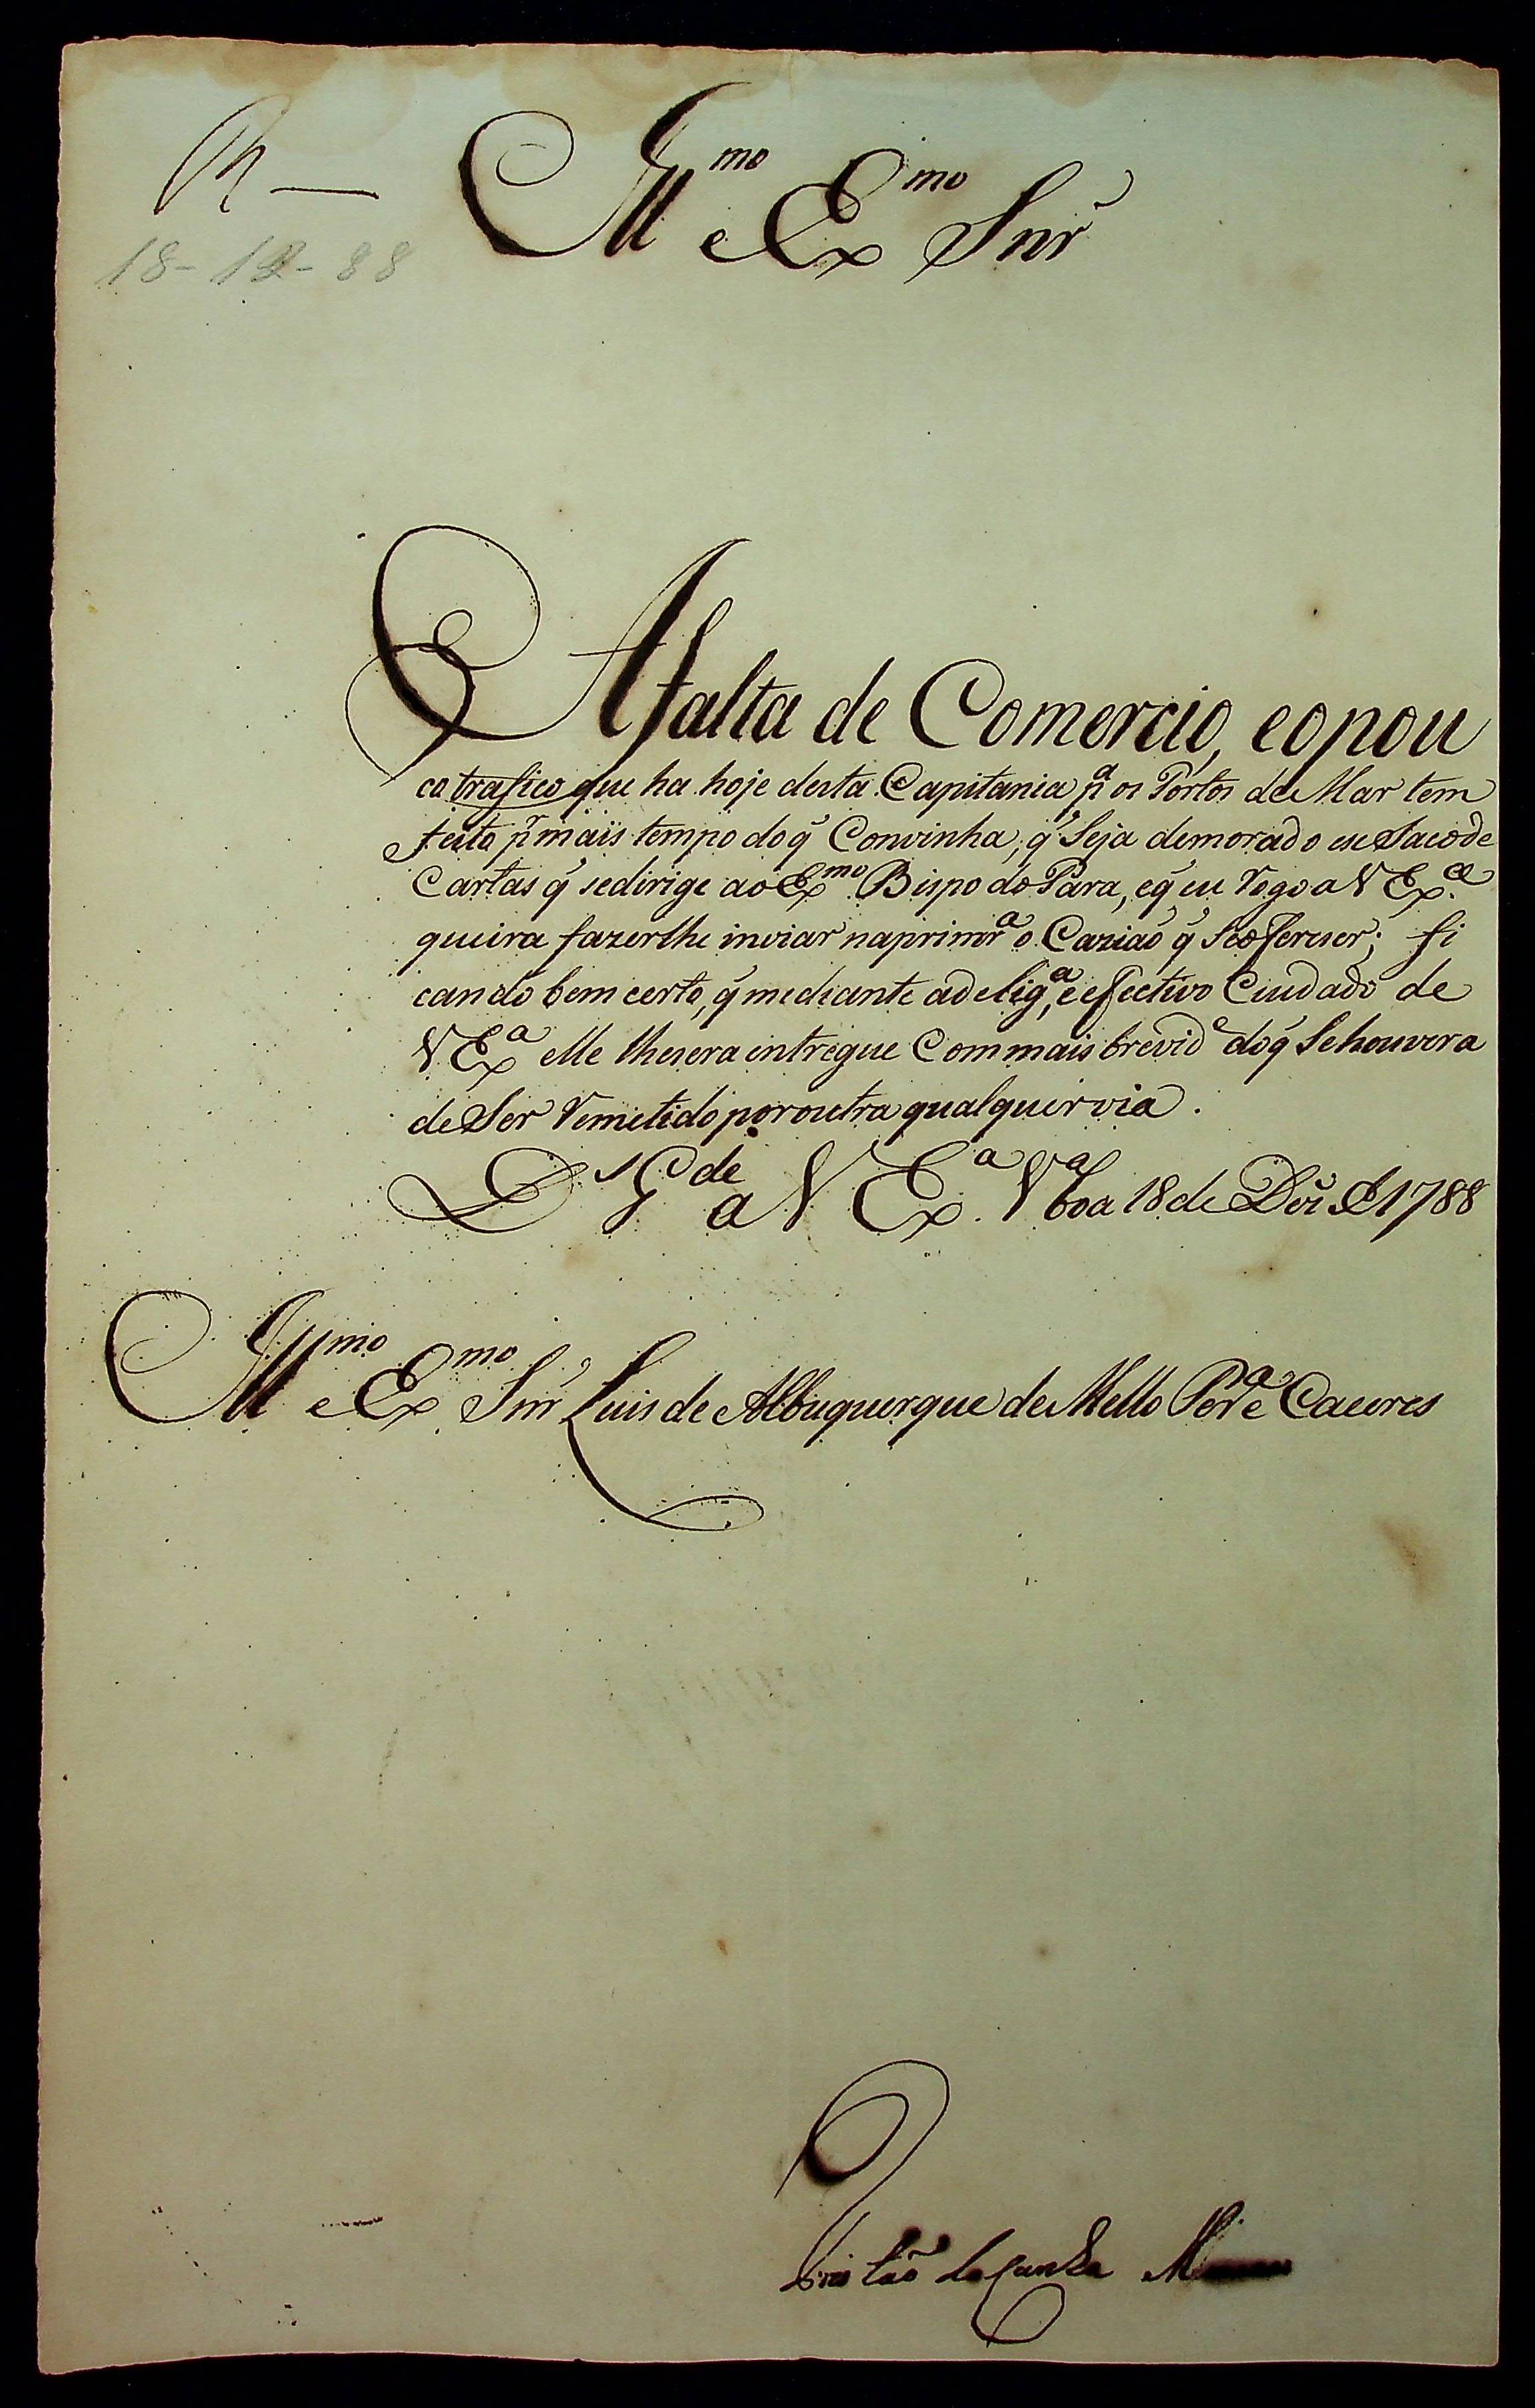 R —
18-12-88
Ill^mo e Ex^mo Snr̃
A falta de Comercio, eopou
co trafico que ha hoje desta Capitania p^a os Portos de Mar tem
feito p^r mais tempo do q̃ Convinha, q̃ Seja demorado esse Saco de
Cartas q̃ sedirige ao Ex^mo Bispo do Pará, eq̃ eu Rogo a V Ex^ca
queira fazerlhe inviar naprimr^a o Caziaõ q̃ Seoffereser; fi
cando bem certo, q̃ mediante adelig^a, e effectivo Cuidado de
V Ex^a elle lhesera entregue Com mais brevid^e doq̃ Sehouvera
de Ser Remetido poroutra qualquer via.
D^s G^de a V Ex^a. V^a boa 18 de Dbr̃ de 1788
Ill^mo e Ex^mo Snr̃ Luis de Albuquerque de Mello Per^a e Caceres
Tristaõ da Cunha M